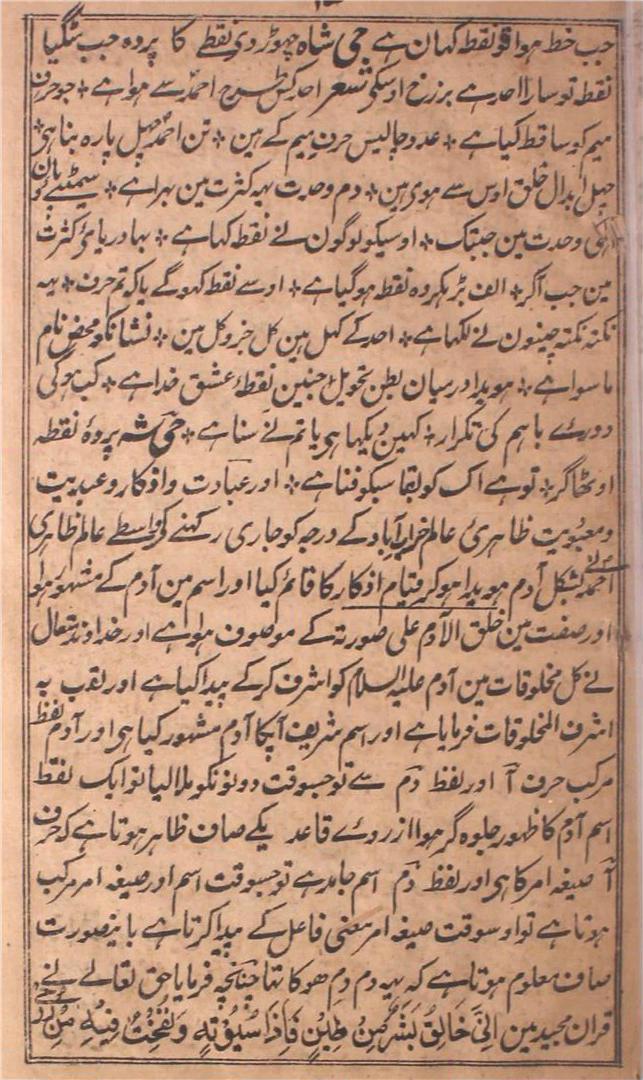 جب خط ہوا تو نقطہ کہان ہے جی شاہ چھوڑ دی نقطے کا پردہ جب ہٹ گیا
نقطہ تو سارا احد ہے برزخ اوسکو شعر احد کس طرح احمد سے ہوا ہے * جو حرف
میم کو ساقط کیا ہے * عدد چالیس حرف میم کے ہین * تن احمد چہل پارہ بنا ہی
چہل ابدال خلق اوس سے ہوی ہین * دم وحدت یہہ کثرت مین بہرا ہے *
وحدت مین جبتک * اوسیکو لوگون نے نقطہ کہا ہے * بہا دریائ کثرت
مین جب آکر * الف بڑہکر وہ نقطہ ہوگیا ہے * اوسے نقطہ کہوگے یا کہ تم حرف * یہہ
نکتہ نکتہ چینون نے لکھا ہے * احد کے کہل ہین کل جزو کل مین * نشانکو محض نام
ماسوا ہے * ہویدا درمیان بطن تحویل * جنین نقطۂ عشق خدا ہے * کب ہوگی
دورے باہم کی تکرار * کہین دیکہا ہی یا تم نے سنا ہے * جی شہ پردۂ نقطہ
اوٹھا گر * تو ہے اک کو بقا سبکو فنا ہے * اور عبادت و اذکار و عبدیت
و معبودیت ظاہری عالم خراب آباد کے درجہ کو جاری رکہنے کی واسطے عالم ظاہری
احمد بشکل آدم ہویدا ہوکر قیام اذکار کا قائم کیا اور اسم مین آدم کے مشہور ہوا
اور صفت مین خلق الآدم علی صورتہ کے موصوف ہوا ہے اور خداوند تعال
نے کل مخلوقات مین آدم علیہ السلام کو اشرف کرکے پیدا کیا ہے اور لقب بہ
اشرف المخلوقات فرمایا ہے اور اسم شریف آپکا آدم مشہور کیا ہی اور آدم لفظ
مرکب حرف آ اور لفظ دم سے تو جسوقت دونونکو ملا لیا تو ایک لفظ
اسم آدم کا ظہور جلوہ گر ہوا از روے قاعدیکے صاف ظاہر ہوتا ہے کہ حرف
آ صیغہ امر کا ہی اور لفظ دم اسم جامد ہے تو جسوقت اسم اور صیغہ امر مرکب
ہوتا ہے تو اوسوقت صیغہ امر معنی فاعل کے پیدا کرتا ہے باینصورت
صاف معلوم ہوتا ہے کہ یہہ دم دم ھو کا تھا چنانچہ فرمایا حق تعالے نے
قران مجید مین اِنِّی خَالِقٌ بَشَرًا مِّنْ طِیْنٍ فَاِذَا سَوَّیْتُہٗ وَنَفَخْتُ فِیْہِ مِنْ